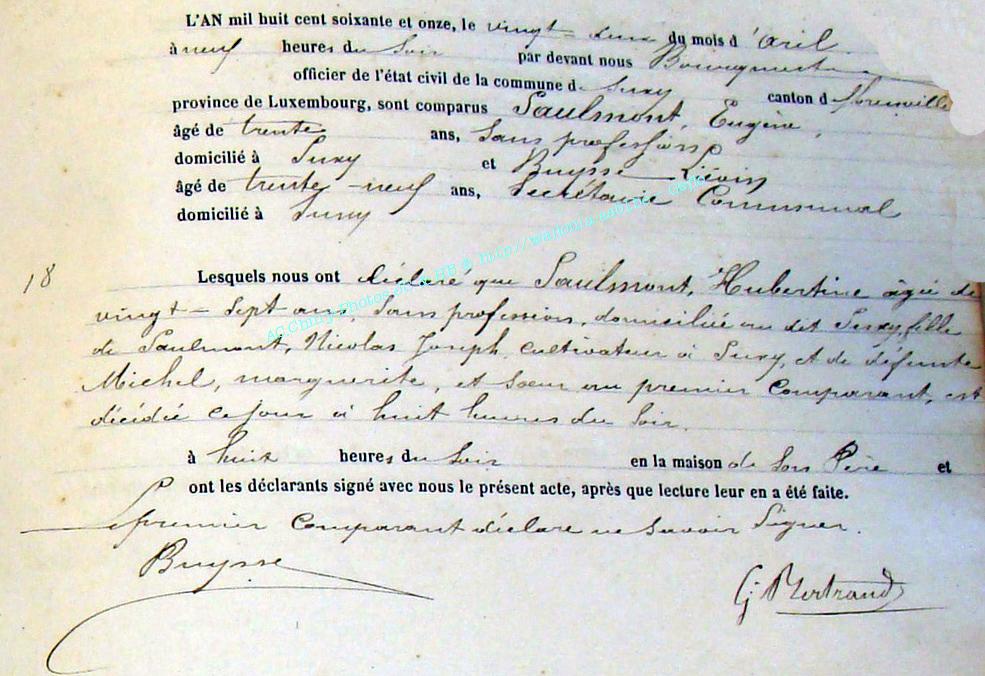 L'AN mil huit cent soixante et onze, le vingt-deux du mois d'avril
à neuf heures du soir par devant nous Bourgmestre
officier de l'état civil de la commune d Suxy canton d Florenville
province de Luxembourg, sont comparus Saulmont, Eugène,
âgé de trente ans, Sans profession
domicilié à Suxy et Buysse Liévin
âgé de trente-neuf ans, Secrétaire Communal
domicilié à Suxy
18 Lesquels nous ont déclaré que Saulmont, Hubertine âgée de
vingt-sept ans, Sans profession, domiciliée au dit Suxy, fille
de Saulmont, Nicolas Joseph, cultivateur à Suxy, et de défunte
Michel, marguerite, et Sœur au premier Comparant, est
décédée ce jour à huit heures du Soir.
à huit heures du Soir en la maison de Son Père et
ont les déclarants signé avec nous le présent acte, après que lecture leur en a été faite.
Le premier Comparant déclare ne Savoir Signer.
Buysse
G Bertrand
AC Chiny Photos HB @ http://wallonia-